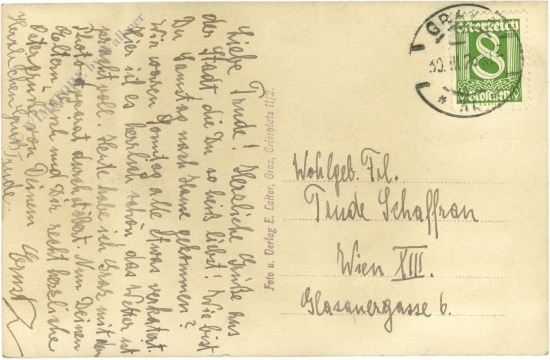 Liebe Trude! Herzliche Grüße aus
der Stadt, die Du so heiß liebst. Wie bist
Du Samstag nach Hause gekommen?
Wir waren Sonntag alle etwas verkatert.
Hier ist es herrlich schön, das Wetter ist
prachtvoll. Heute habe ich Graz mit dem
Photoapparat durchstöbert. Nun Deinen
Eltern und Dir recht herzliche
Ostergrüße von Deinem Ernst
Herzlichen Gruß Trude.
Foto u. Verlag E. Lotter, Graz, Griesplatz 11/2.
GRAZ
30.III.
Österreich
8
Groschen
Wohlgeb. Frl.
Trude Schaffran
Wien XIII.
Glasauergasse 6.